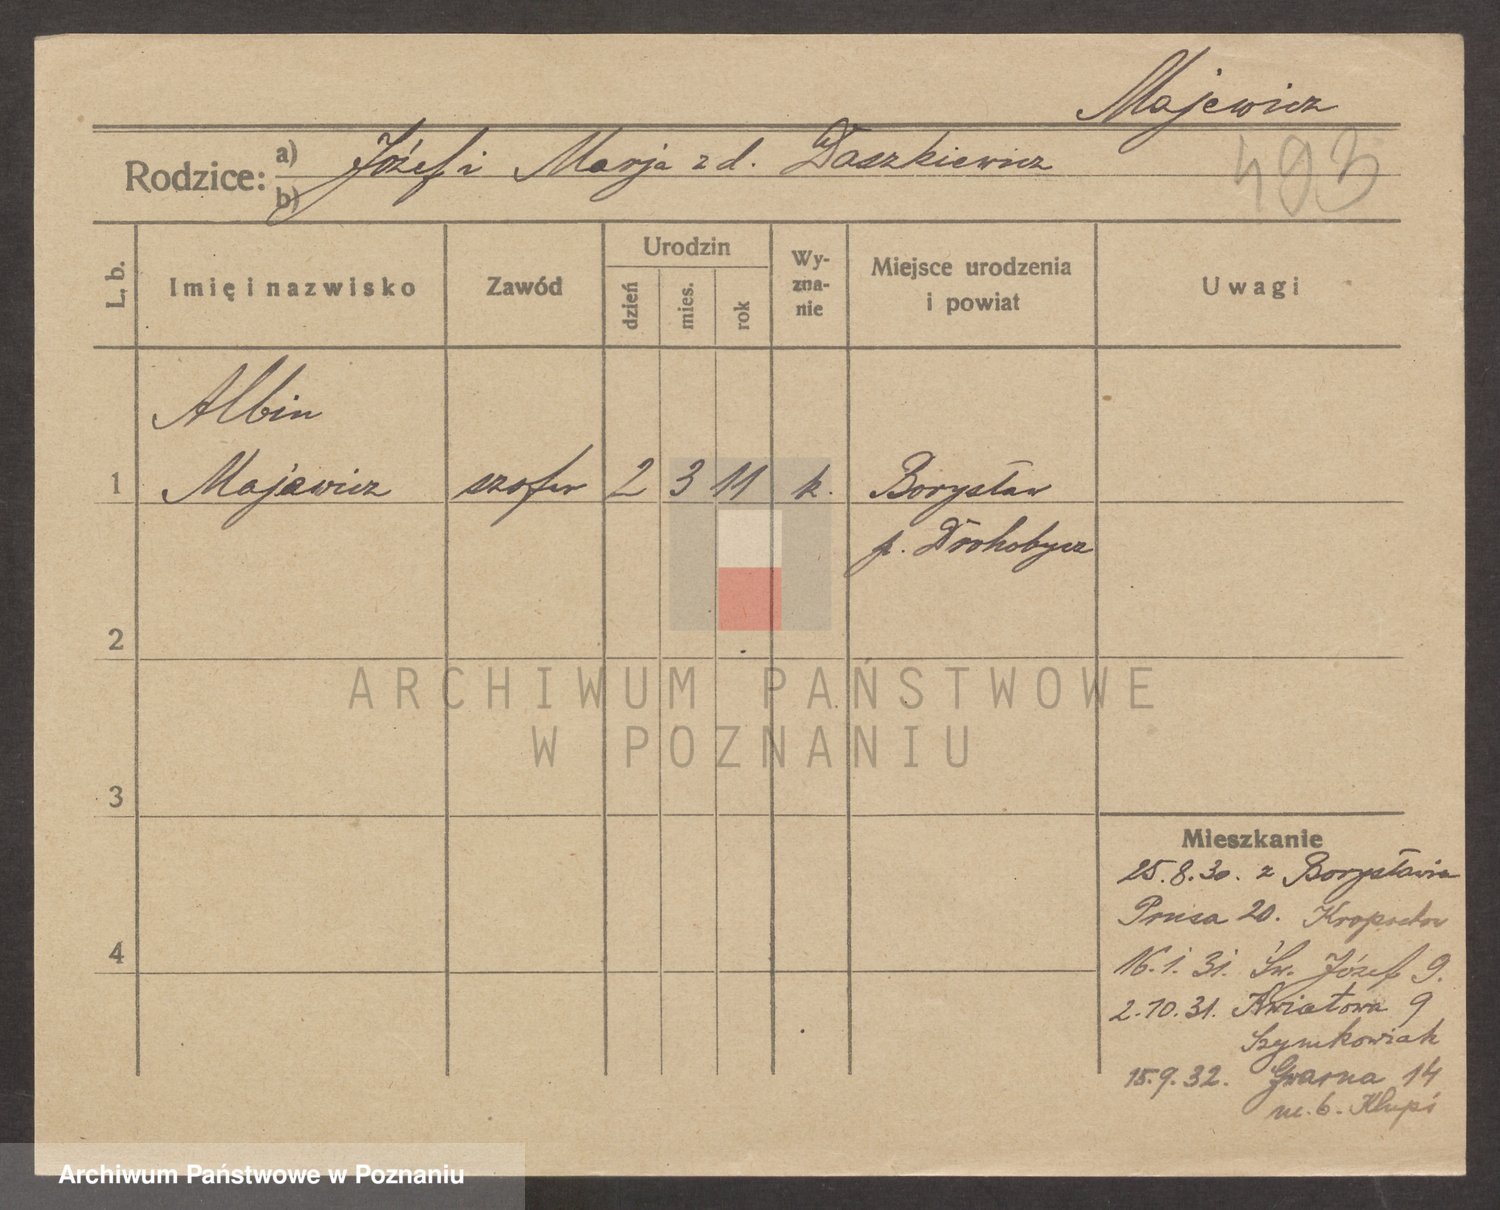 Majewicz
493
Rodzice: a) Józef i Marja z d. Daszkiewicz
b)
L. b.
Imię i nazwisko
Zawód
Urodzin
dzień
mies.
rok
Wy-
zna-
nie
Miejsce urodzenia
i powiat
Uwagi
Albin
1 Majewicz szofer 2 3 11 k. Borysław
p. Drohobycz
2
3
4
Mieszkanie
25.8.30. z Borysławia
Prusa 20.
16.1.31. Św. Józef 9.
2.10.31. Kwiatowa 9
Szymkowiak
15.9.32. Gwarna 14
m. 6.
ARCHIWUM PAŃSTWOWE
W POZNANIU
Archiwum Państwowe w Poznaniu